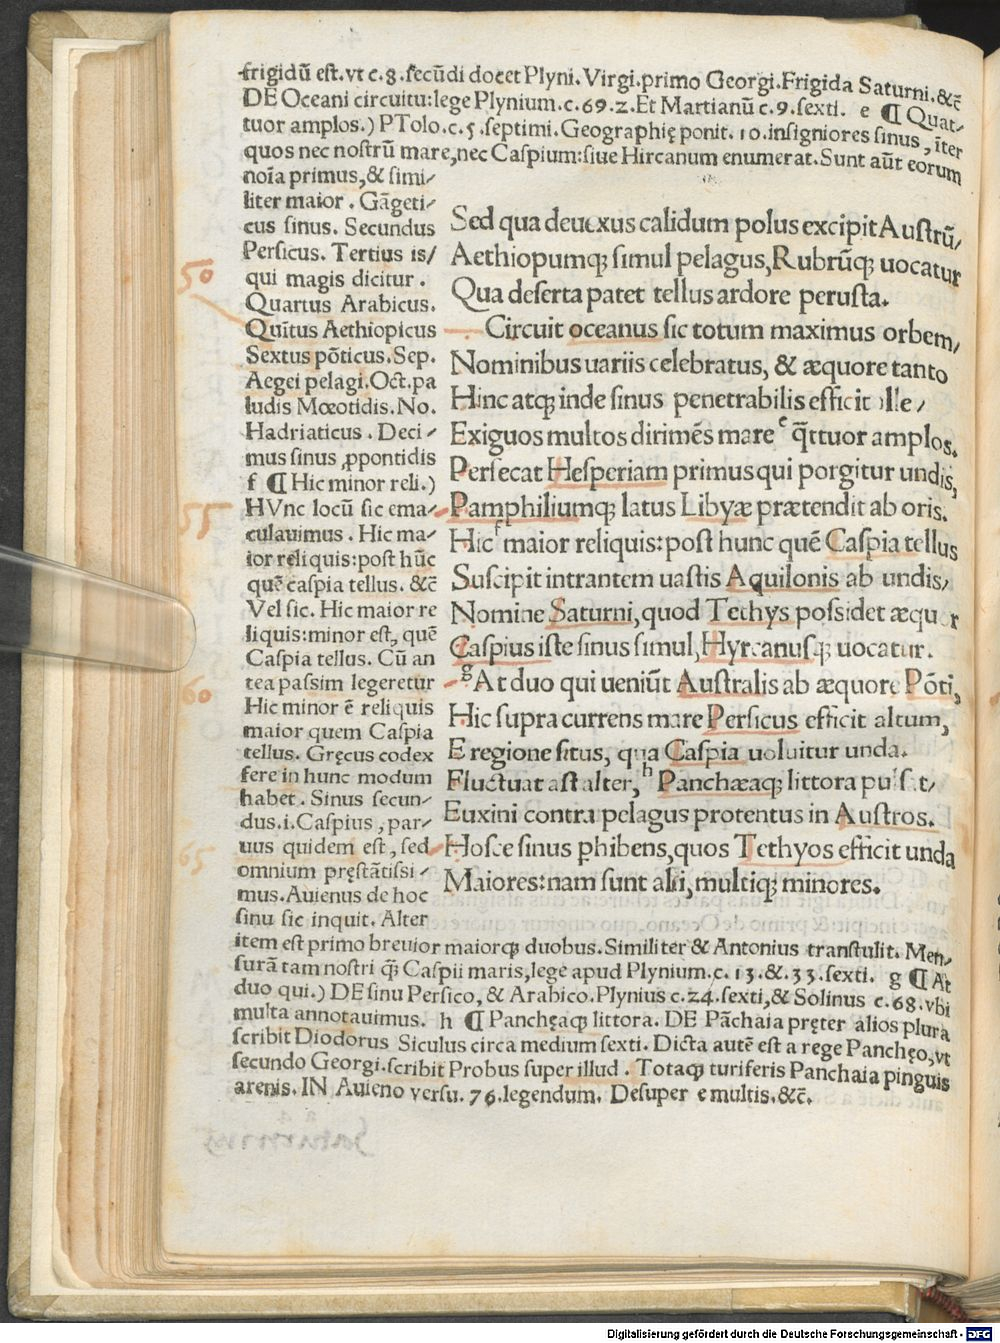 frigidū est.vt c.8.secūdi docet Plyni.Virgi.primo Georgi.Frigida Saturni.&c̄
DE Oceani circuitu:lege Plynium.c.69.2.Et Martianū c.9.sexti. e ¶ Quat⸗
tuor amplos.) PTolo.c.5.septimi.Geographię ponit.10.insigniores sinus, iter
quos nec nostrū mare,nec Caspium:siue Hircanum enumerat.Sunt aūt eorum
noīa primus,& simi⸗
liter maior . Gāgeti⸗
cus sinus. Secundus
Persicus. Tertius is/
qui magis dicitur .
Quartus Arabicus.
Quītus Aethiopicus
Sextus pōticus.Sep.
Aegei pelagi.Oct.pa
ludis Mœotidis.No.
Hadriaticus . Deci⸗
mus sinus ꝓpontidis
f ¶ Hic minor reli.)
HVnc locū sic ema⸗
culauimus . Hic ma⸗
ior reliquis:post hūc
quē caspia tellus. &c̄
Vel sic. Hic maior re
liquis:minor est, quē
Caspia tellus. Cū an
tea passim legeretur
Hic minor ē reliquis
maior quem Caspia
tellus. Gręcus codex
fere in hunc modum
habet . Sinus secun⸗
dus.i.Caspius , par⸗
uus quidem est , sed
omnium pręstātissi⸗
mus.Auienus de hoc
sinu sic inquit. Alter
50
55
60
65
Sed qua deuexus calidum polus excipit Austrū/
Aethiopumqꝫ simul pelagus,Rubrūqꝫ uocatur
Qua deserta patet tellus ardore perusta.
Circuit oceanus sic totum maximus orbem/
Nominibus uariis celebratus, & æquore tanto
Hinc atqꝫ inde sinus penetrabilis efficit ille/
Exiguos multos dirimēs mare e q̄ttuor amplos.
Persecat Hesperiam primus qui porgitur undis,
Pamphiliumqꝫ latus Libyæ prætendit ab oris.
Hic f maior reliquis:post hunc quē Caspia tellus
Suscipit intrantem uastis Aquilonis ab undis/
Nomine Saturni,quod Tethys possidet æquor
Caspius iste sinus simul,Hyrcanusqꝫ uocatur.
g At duo qui ueniūt Australis ab æquore Pōti,
Hic supra currens mare Persicus efficit altum,
E regione situs, qua Caspia uoluitur unda.
Fluctuat ast alter, h Panchæaqꝫ littora pulsat/
Euxini contra pelagus protentus in Austros.
Hosce sinus phibens,quos Tethyos efficit unda
Maiores:nam sunt alii,multiqꝫ minores.
item est primo breuior maiorqꝫ duobus.Similiter & Antonius transtulit. Men⸗
surā tam nostri q̄ꝫ Caspii maris,lege apud Plynium.c.13.&.33.sexti. g ¶ At
duo qui.) DE sinu Persico, & Arabico.Plynius c.24.sexti,& Solinus c.68.vbi
multa annotauimus. h ¶ Panchęaqꝫ littora. DE Pāchaia pręter alios plura
scribit Diodorus Siculus circa medium sexti. Dicta autē est a rege Panchęo,vt
secundo Georgi.scribit Probus super illud . Totaqꝫ turiferis Panchaia pinguis
arenis. IN Auieno versu. 76.legendum. Desuper e multis.&c̄.
Digitalisierung gefördert durch die Deutsche Forschungsgemeinschaft - DFG